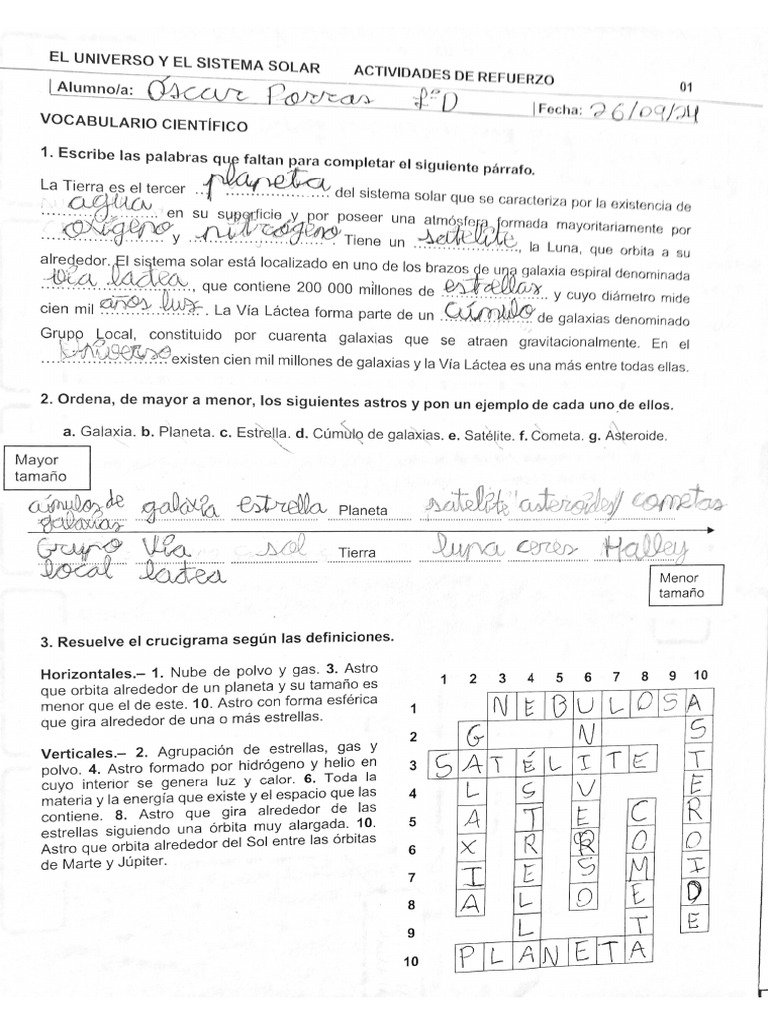 EL UNIVERSO Y EL SISTEMA SOLAR ACTIVIDADES DE REFUERZO 01
Alumno/a: Óscar Porras 1ºD Fecha: 26/09/24
VOCABULARIO CIENTÍFICO
1. Escribe las palabras que faltan para completar el siguiente párrafo.
La Tierra es el tercer planeta del sistema solar que se caracteriza por la existencia de
agua en su superficie y por poseer una atmósfera formada mayoritariamente por
oxígeno y nitrógeno Tiene un satelite, la Luna, que orbita a su
alrededor. El sistema solar está localizado en uno de los brazos de una galaxia espiral denominada
Vía lactea, que contiene 200 000 millones de estrellas y cuyo diámetro mide
cien mil años luz. La Vía Láctea forma parte de un cúmulo de galaxias denominado
Grupo Local, constituido por cuarenta galaxias que se atraen gravitacionalmente. En el
Universo existen cien mil millones de galaxias y la Vía Láctea es una más entre todas ellas.
2. Ordena, de mayor a menor, los siguientes astros y pon un ejemplo de cada uno de ellos.
a. Galaxia. b. Planeta. c. Estrella. d. Cúmulo de galaxias. e. Satélite. f. Cometa. g. Asteroide.
Mayor
tamaño
cúmulos de galaxia estrella Planeta satelite asteroides cometas
galaxias
Grupo Vía sol Tierra luna ceres Halley
local lactea
Menor
tamaño
3. Resuelve el crucigrama según las definiciones.
Horizontales.– 1. Nube de polvo y gas. 3. Astro
que orbita alrededor de un planeta y su tamaño es
menor que el de este. 10. Astro con forma esférica
que gira alrededor de una o más estrellas.
Verticales.– 2. Agrupación de estrellas, gas y
polvo. 4. Astro formado por hidrógeno y helio en
cuyo interior se genera luz y calor. 6. Toda la
materia y la energía que existe y el espacio que las
contiene. 8. Astro que gira alrededor de las
estrellas siguiendo una órbita muy alargada. 10.
Astro que orbita alrededor del Sol entre las órbitas
de Marte y Júpiter.
1 2 3 4 5 6 7 8 9 10
1 N E B U L O S A
2 G N S
3 S A T É L I T E T
4 L S V E
5 A T E C R
6 X R R O O
7 I E S M I
8 A L O E D
9 L T E
10 P L A N E T A